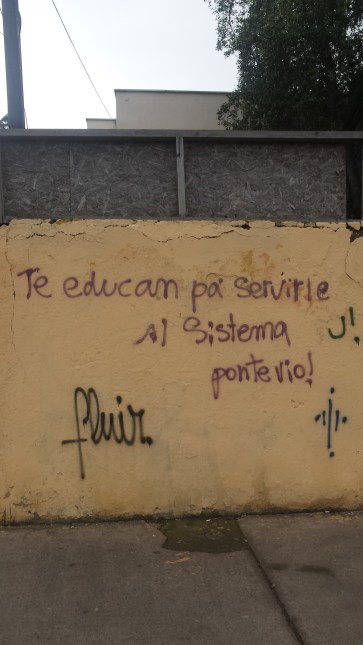 Te educan pa servirle
Al Sistema
ponte vio!
fluir.